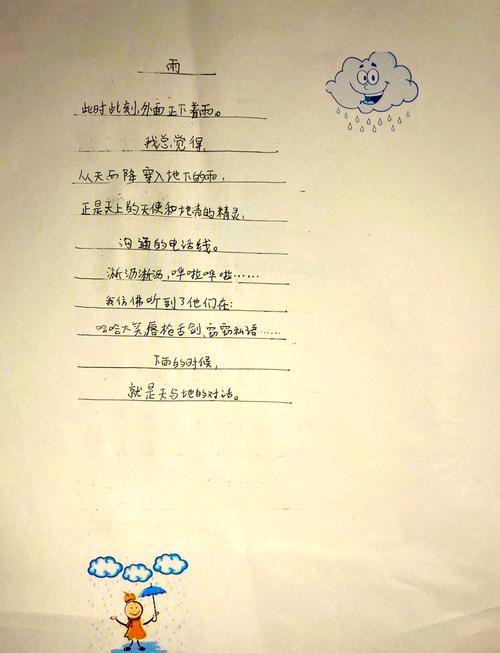 雨
此时此刻,外面正下着雨。
我总觉得,
从天而降穿入地下的雨,
正是天上的天使和地壳的精灵,
沟通的电话线。
淅沥淅沥,哗啦哗啦……
我仿佛听到了他们在:
哈哈大笑唇枪舌剑,窃窃私语……
下雨的时候,
就是天与地的对话。